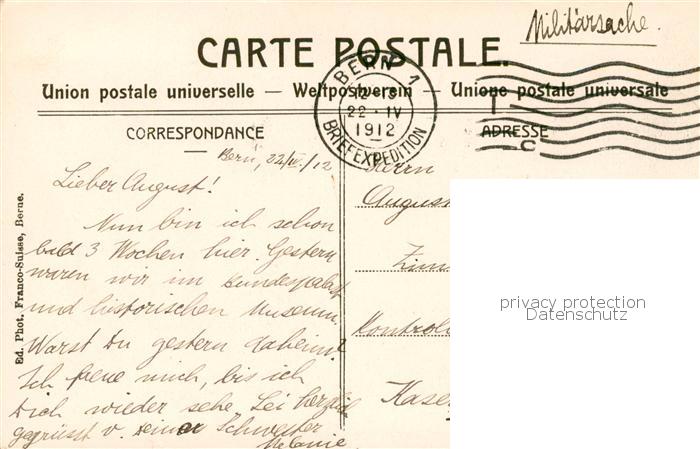 Militärsache.
CARTE POSTALE.
Union postale universelle — Weltpostverein — Unione postale universale
BERN 1
22 · IV
1912
BRIEFEXPEDITION
CORRESPONDANCE
ADRESSE
Bern, 22/IV./12
Lieber August!
Nun bin ich schon
bald 3 Wochen hier. Gestern
waren wir im Bundespalast
und historischen Museum.
Warst Du gestern daheim?
Ich freue mich, bis ich
Dich wieder sehe. Sei herzlich
gegrüsst v. deiner Schwester
Melanie
Herrn
August
Kontroll
Kaser
Ed. Phot. Franco-Suisse, Berne.
privacy protection
Datenschutz